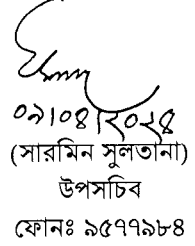 ০৯|০৪|২০২৪
(সারমিন সুলতানা)
উপসচিব
ফোনঃ ৯৫৭৭৯৮৪